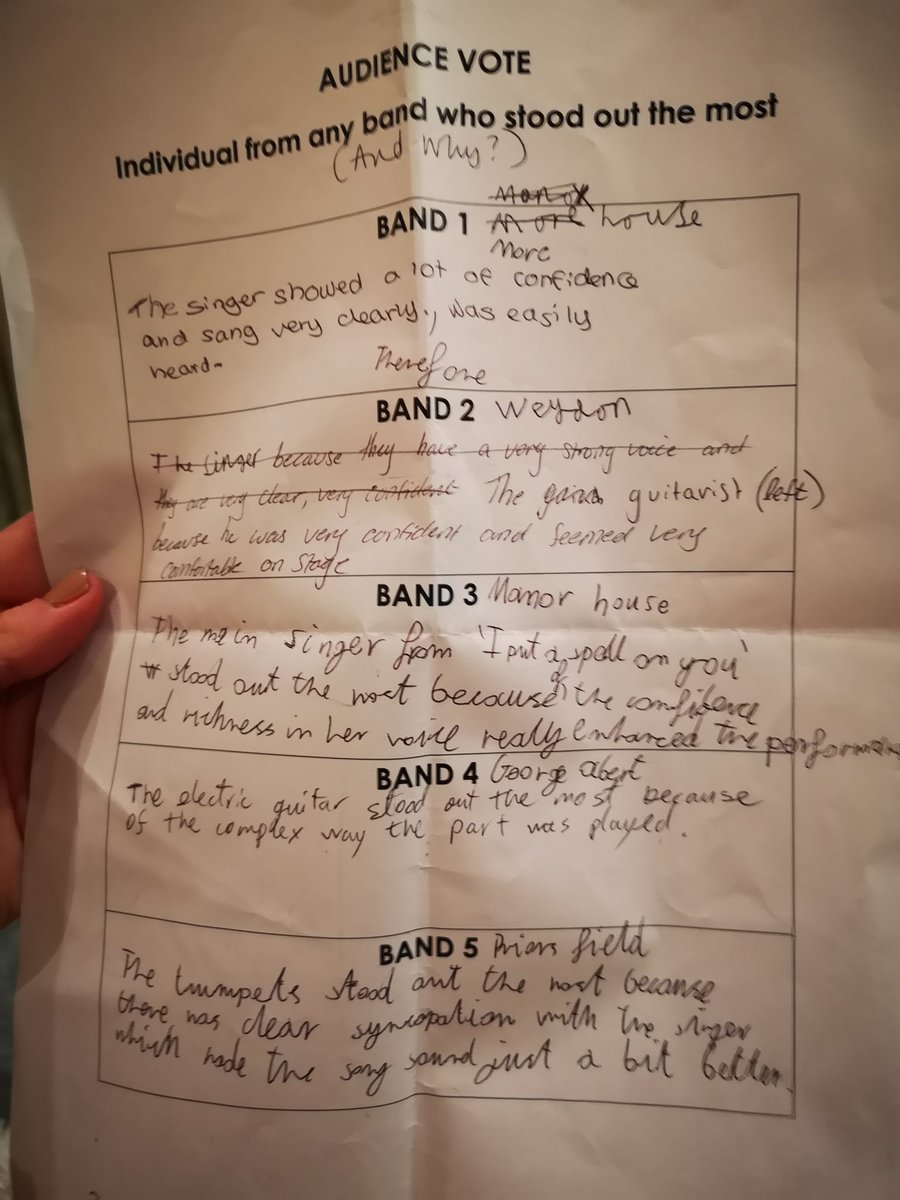 AUDIENCE VOTE
Individual from any band who stood out the most
(And Why?)
BAND 1 More house
More
The singer showed a lot of confidence
and sang very clearly., was easily
heard-
Therefore
BAND 2 Weydon
The singer because they have a very strong voice and
they are very clear, very confident The guitarist (left)
because he was very confident and seemed very
comfortable on stage
BAND 3 Manor house
The main singer from 'I put a spell on you'
stood out the most because of the confidence
and richness in her voice really enhanced the performan
BAND 4 George abert
The electric guitar stood out the most because
of the complex way the part was played.
BAND 5 Priors field
The trumpets stood out the most because
there was clear syncopation with the singer
which made the song sound just a bit better.